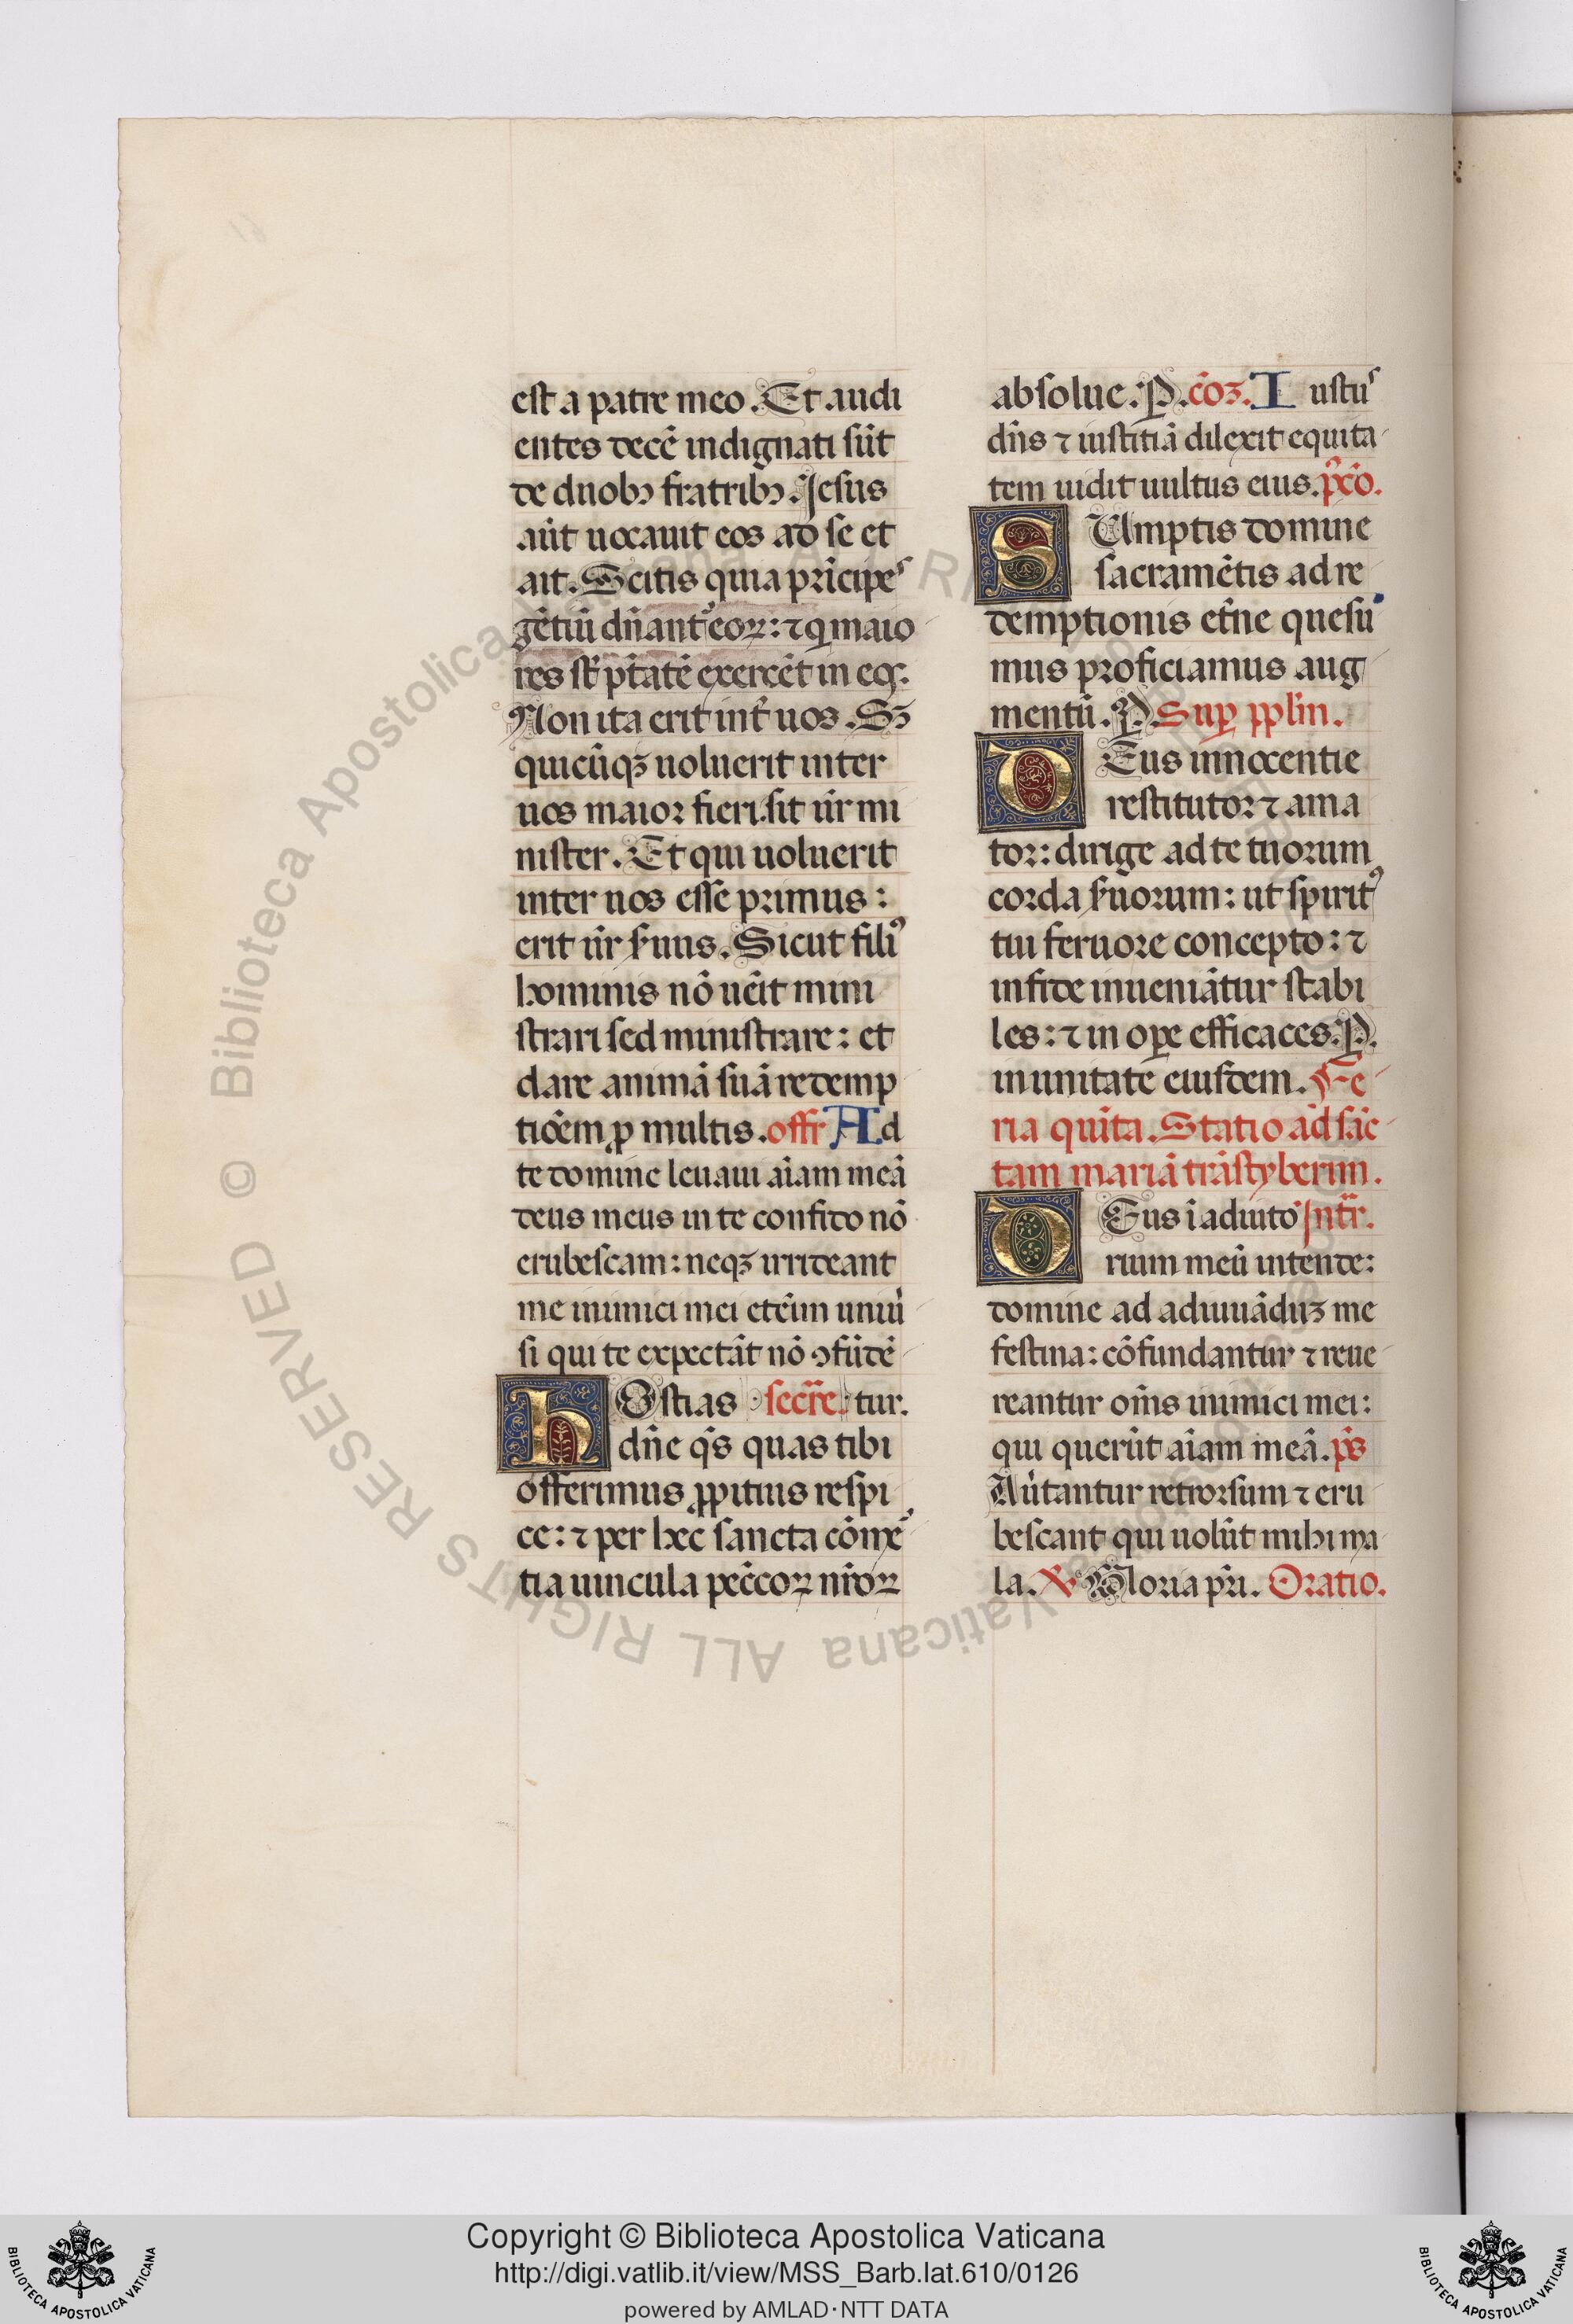 est a patre meo. Et audi
entes decē indignati sūt
de duobꝫ fratribꝫ. Jesus
aūt uocauit eos ad se et
ait. Scitis quia prīcipes
gētiū dn̄ant᷑ eoꝝ: ⁊ qͥ maio
res st̄ ptātē exercēt in eos.
Non ita erit int̄ uos. Sꝫ
quicūqꝫ uoluerit inter
uos maior fieri. sit ur̄ mi
nister. Et qui uoluerit
inter uos esse primus:
erit ur̄ s̄uus. Sicut filiꝰ
hominis nō uēit mini
strari sed ministrare: et
dare animā suā redemp
tiōem ꝓ multis. offr Ad
te domine leuaui aīam meā
deus meus in te confido nō
erubescam: neqꝫ irrideant
me inimici mei etēim uniu̇
si qui te expectāt nō ꝯfūdē
Hostias secre. tur.
dn̄e qs̄ quas tibi
offerimus ꝓpitius respi
ce: ⁊ per hec sancta cōme
tia uincula pec̄coꝝ nr̄oꝝ
absolue. P. cōꝫ. Iustus
dn̄s ⁊ iustitiā dilexit equita
tem uidit uultus eius. pꝰcō.
SUmptis domine
sacramētis ad re
demptionis et̄ne quesu
mus proficiamus aug
mentū. P. Suꝑ pp̄lm.
DEus innocentie
restitutor ⁊ ama
tor: dirige ad te tuorum
corda s̄uorum: ut spiritꝰ
tui feruore concepto: ⁊
in fide inueniātur stabi
les: ⁊ in oꝑe efficaces. P.
in unitate eiusdem. Fe
ria quīta. Statio ad sāc
tam mariā trāstyberim.
DEus ī adiuto Intr̄.
rium meū intende:
domine ad adiuuāduꝫ me
festina: cōfundantur ⁊ reue
reantur om̄s inimici mei:
qui querūt aīam meā. ps̄
Auertantur retrorsum ⁊ eru
bescant qui uolūt mihi ma
la. ℣ Gloria pr̄i. Oratio.
© Biblioteca Apostolica Vaticana ALL RIGHTS RESERVED
Copyright © Biblioteca Apostolica Vaticana
http://digi.vatlib.it/view/MSS_Barb.lat.610/0126
powered by AMLAD·NTT DATA
BIBLIOTECA APOSTOLICA VATICANA
BIBLIOTECA APOSTOLICA VATICANA